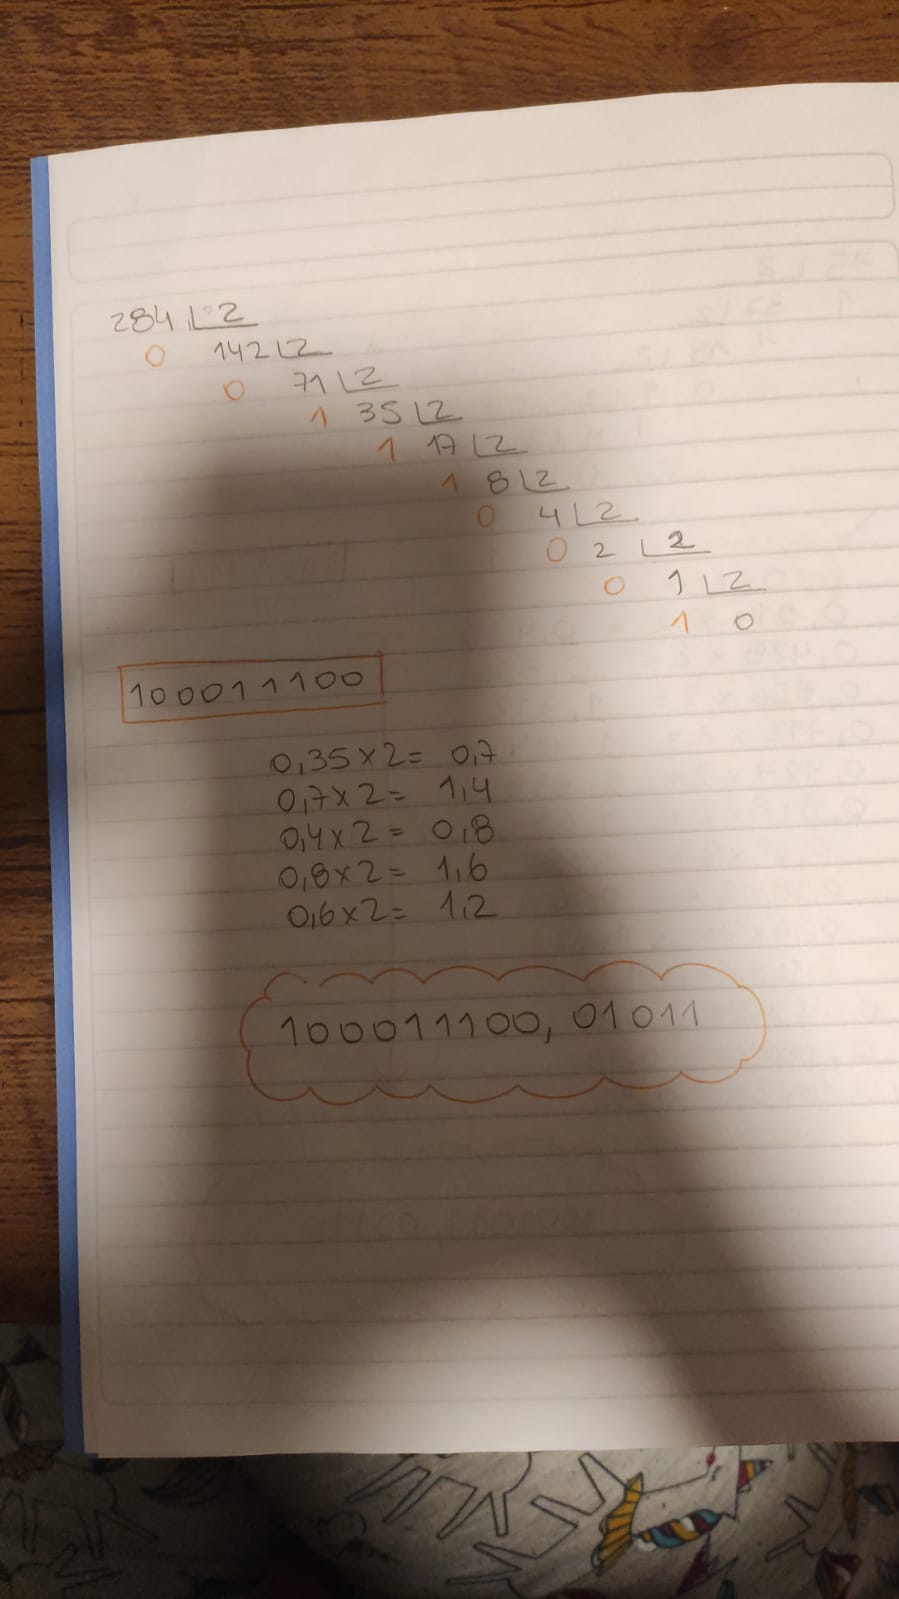 284 2
0 142 2
0 71 2
1 35 2
1 17 2
1 8 2
0 4 2
0 2 2
0 1 2
1 0
100011100
0,35x2= 0,7
0,7x2= 1,4
0,4x2= 0,8
0,8x2= 1,6
0,6x2= 1,2
100011100, 01011